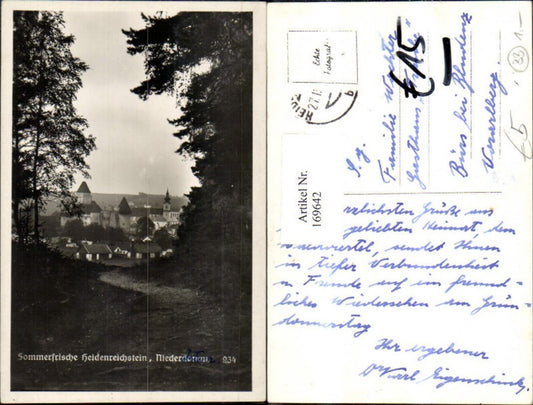 Sommerfrische Heidenreichstein, Niederdonau 234
Echte
Fotograf
27.1
b
€15
33 1.-
€5
Artikel Nr.
169642
S. g.
Familie
Gasthaus
Bürs bei Bludenz
Vorarlberg
rzlichsten Grüße aus
geliebten Heimat, dem
viertel, sendet Ihnen
in tiefer Verbundenheit
u. Freude auf ein freund-
liches Wiedersehen am Grün-
donnerstag
Ihr ergebener
Dr Karl